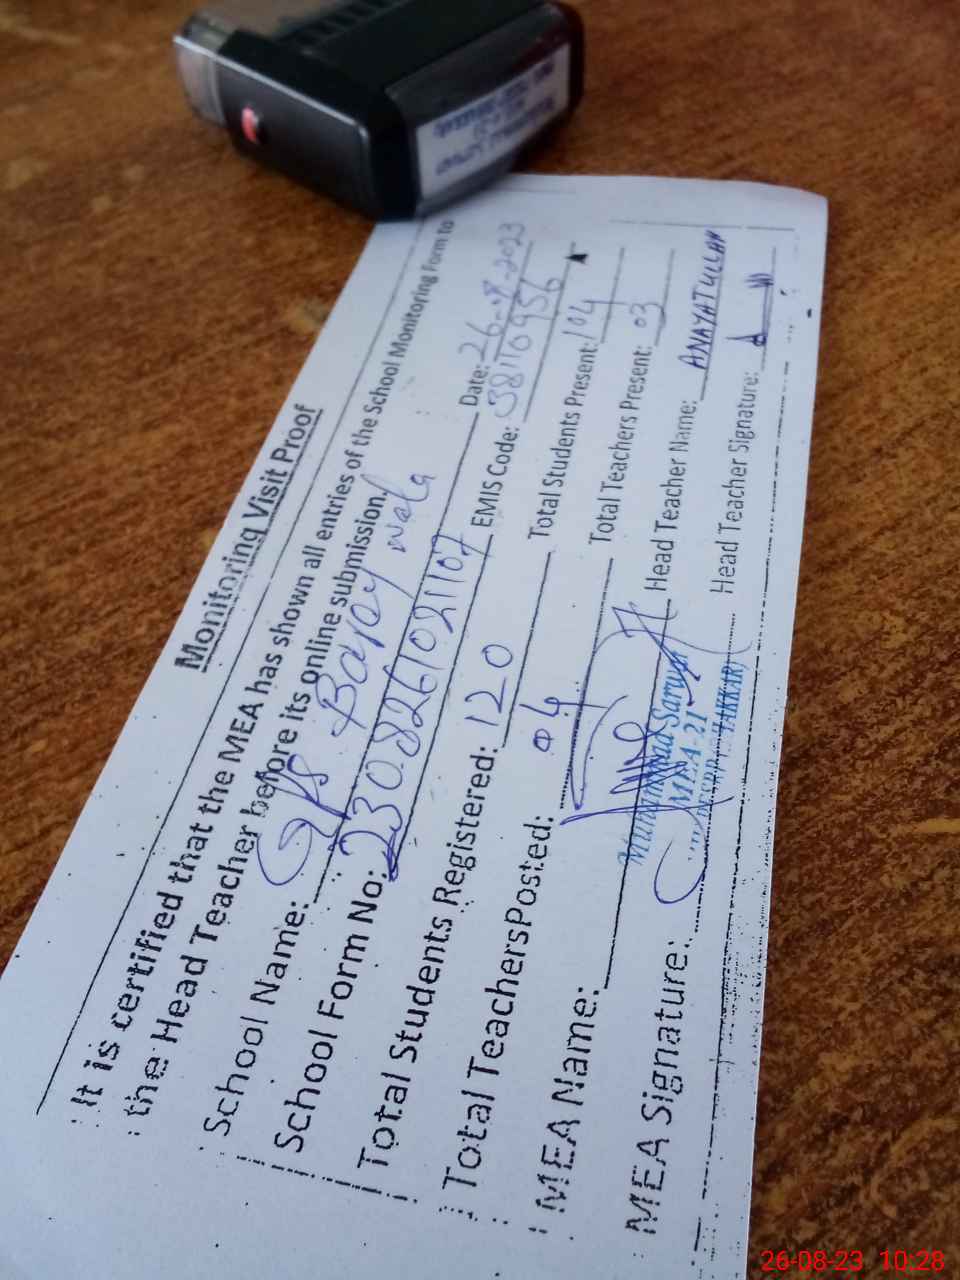 Monitoring Visit Proof
It is certified that the MEA has shown all entries of the School Monitoring Form to
the Head Teacher before its online submission.
School Name: GPS wala Date: 26-8-2023
School Form No: 2308261021107 EMIS Code: 38110956
Total Students Registered: 120 Total Students Present: 104
Total TeachersPosted: 04 Total Teachers Present: 03
MEA Name: Head Teacher Name: ANAYATULLAH
Muhammad Sarwar
MEA-21
MEA Signature: Head Teacher Signature:
26-08-23 10:28